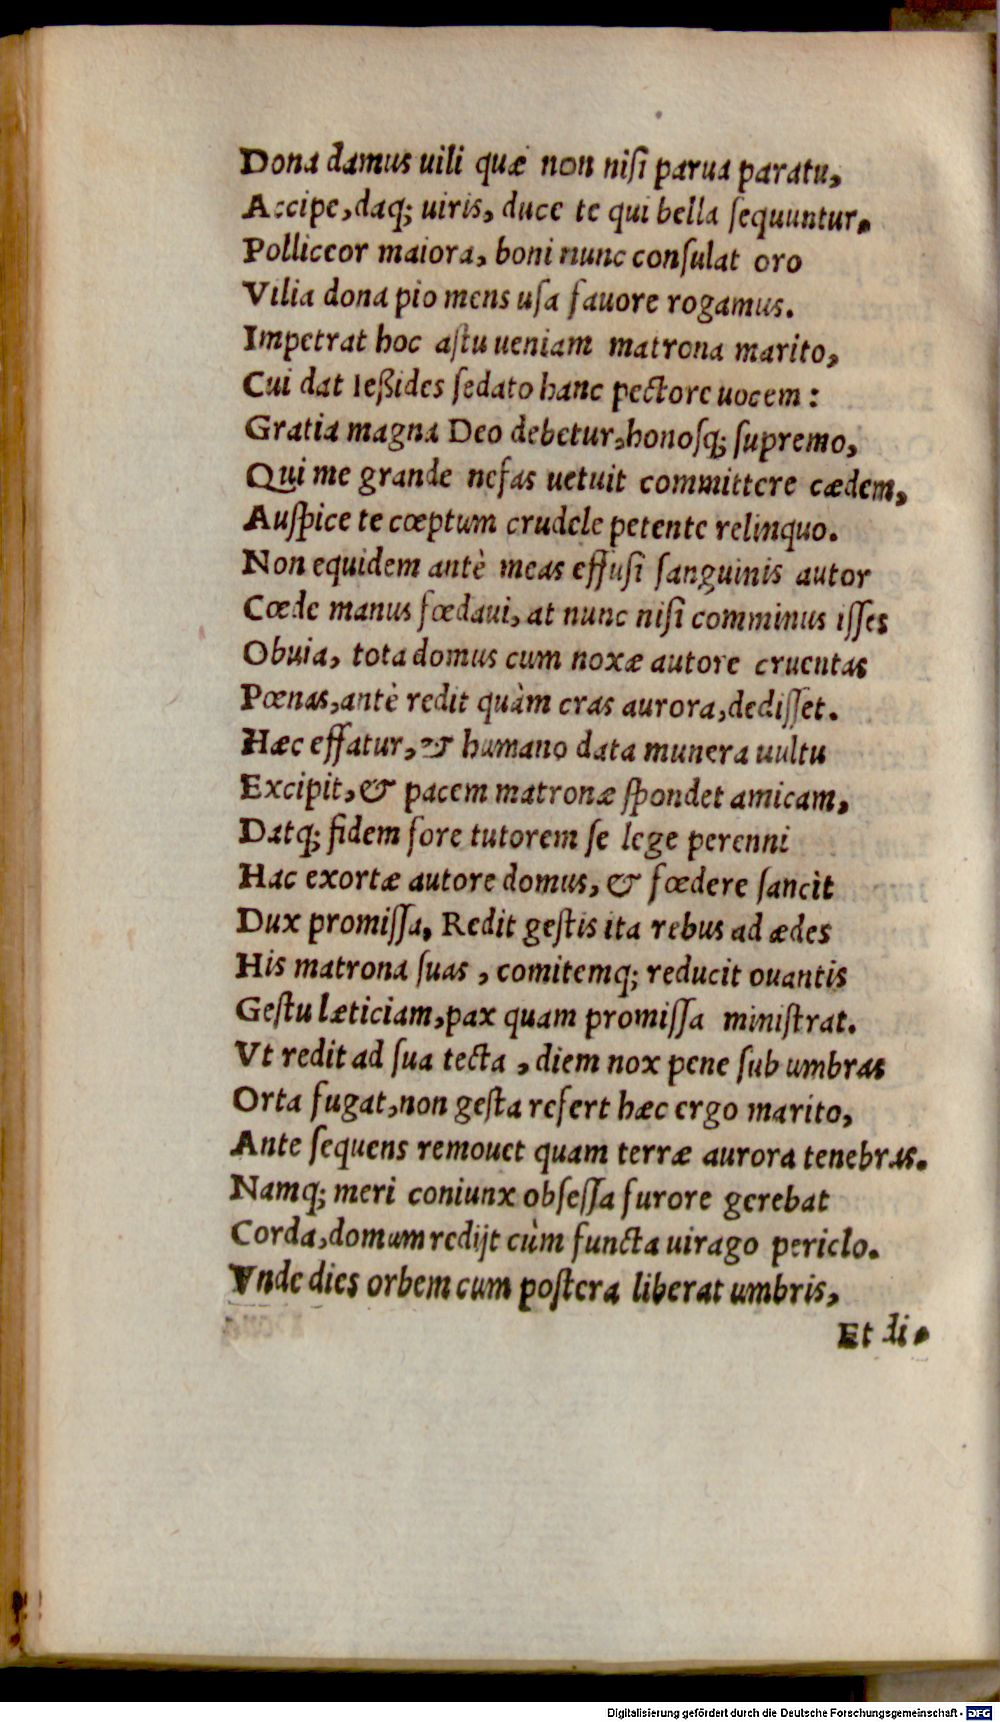 Dona damus uili quæ non niſi parua paratu,
Accipe, daq; uiris, duce te qui bella ſequuntur.
Polliceor maiora, boni nunc conſulat oro
Vilia dona pio mens uſa fauore rogamus.
Impetrat hoc aſtu ueniam matrona marito,
Cui dat Ießides ſedato hanc pectore uocem:
Gratia magna Deo debetur, honoſq; ſupremo,
Qui me grande nefas uetuit committere cædem,
Auſpice te cœptum crudele petente relinquo.
Non equidem antè meas effuſi ſanguinis autor
Cœde manus fœdaui, at nunc niſi comminus iſſes
Obuia, tota domus cum noxæ autore cruentas
Pœnas, antè redit quàm cras aurora, dediſſet.
Hæc effatur, & humano data munera uultu
Excipit, & pacem matronæ ſpondet amicam,
Datq; fidem fore tutorem ſe lege perenni
Hac exortæ autore domus, & fœdere ſancit
Dux promiſſa. Redit geſtis ita rebus ad ædes
His matrona ſuas, comitemq; reducit ouantis
Geſtu læticiam, pax quam promiſſa miniſtrat.
Vt redit ad ſua tecta, diem nox pene ſub umbras
Orta fugat, non geſta refert hæc ergo marito,
Ante ſequens remouet quam terræ aurora tenebras.
Namq; meri coniunx obſeſſa furore gerebat
Corda, domum redijt cùm functa uirago periclo.
Vnde dies orbem cum poſtera liberat umbris,
Et di-
Digitalisierung gefördert durch die Deutsche Forschungsgemeinschaft - DFG